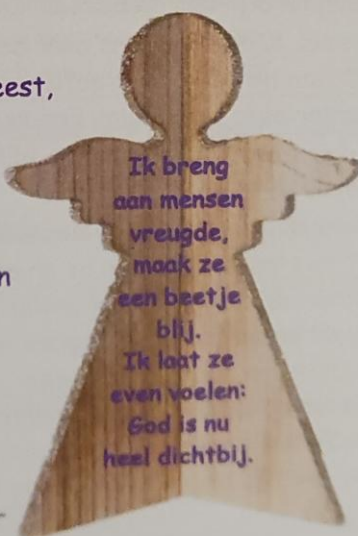 eest,
n
Ik breng
aan mensen
vreugde,
maak ze
een beetje
blij.
Ik laat ze
even voelen:
God is nu
heel dichtbij.